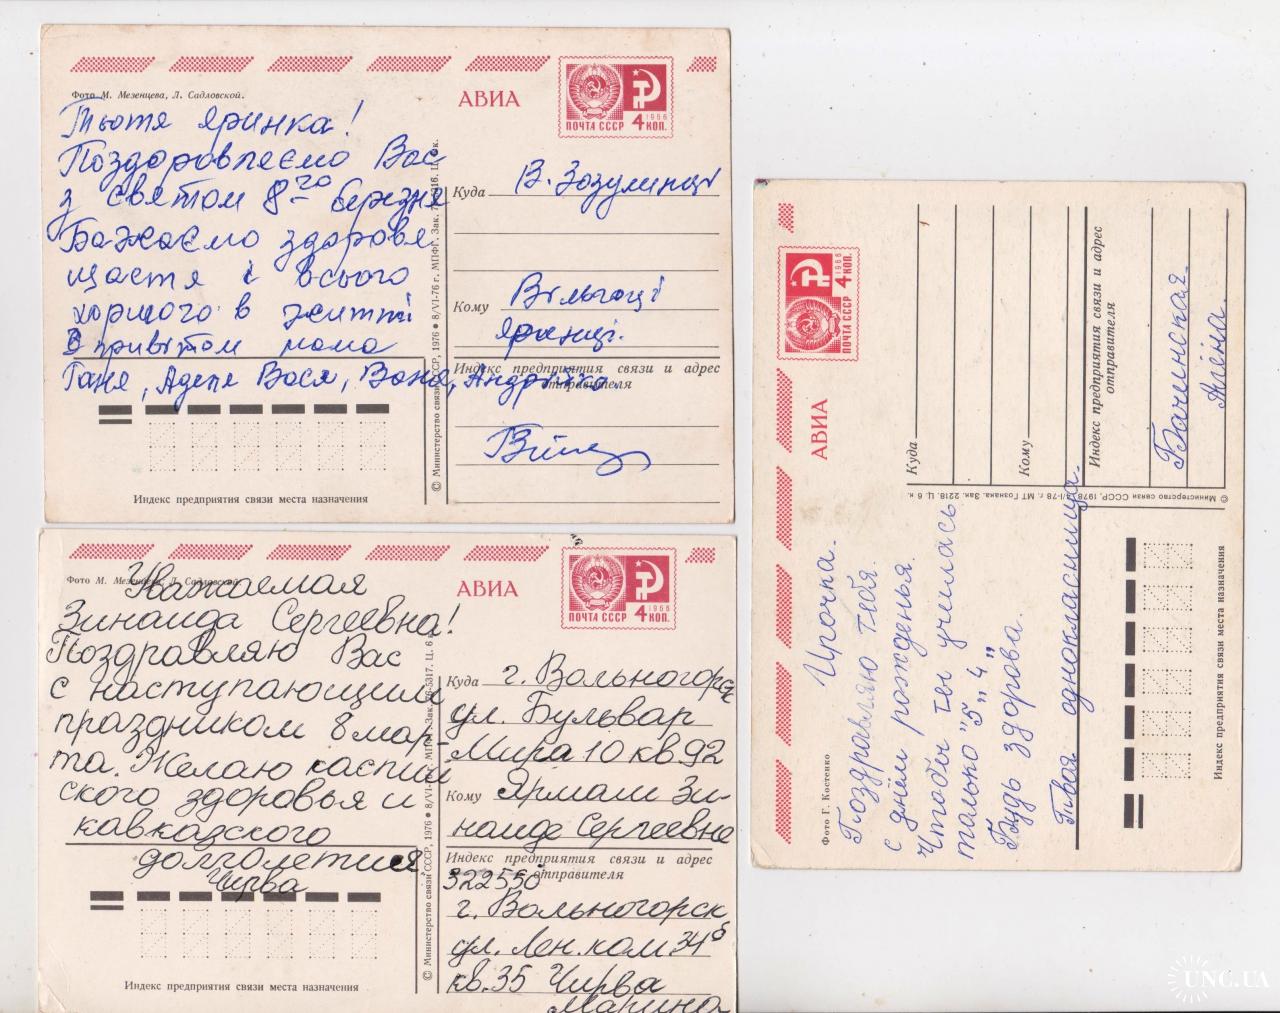 Фото М. Мезенцева, Л. Садловской.
АВИА
1966
ПОЧТА СССР 4 КОП.
Тьотя Яринка!
Поздоровляємо Вас
з святом 8-го березня
Бажаємо здоровя
щастя і всього
хорошого в житті
З привітом мама
Ганя, Адела Вася, Ваня, Андрійко.
Куда В. Зозулинці
Кому Вільгоці
Яринці.
Индекс предприятия связи и адрес
отправителя
Индекс предприятия связи места назначения
© Министерство связи СССР, 1976 • 8/VI-76 г. МПФГ. Зак.
Фото М. Мезенцева, Л. Садловской.
АВИА
1966
ПОЧТА СССР 4 КОП.
Уважаемая
Зинаида Сергеевна!
Поздравляю Вас
с наступающим
праздником 8 мар-
та. Желаю каспий
ского здоровья и
кавказского
долголетия
Чирва
Куда г. Вольногорск
ул. Бульвар
Мира 10 кв 92
Кому Ярмаш Зи-
наиде Сергеевне
Индекс предприятия связи и адрес
отправителя
322550
г. Вольногорск
ул. Лен.ком 34б
кв. 35 Чирва
Марина
Индекс предприятия связи места назначения
© Министерство связи СССР, 1976 • 8/VI-
Зак. 76-5317. Ц. 6 к.
АВИА
1966
ПОЧТА СССР 4 КОП.
Фото Г. Костенко
Ирочка.
Поздравляю тебя
с днём рожденья.
Чтобы ты училась
только "5" "4"
Будь здорова.
Твая однокласница.
Куда
Кому
Индекс предприятия связи и адрес
отправителя
Бачинская
Алёна.
© Министерство связи СССР, 1978
/I-78 г. МТ Гознака. Зак. 2218. Ц. 6 к.
Индекс предприятия связи места назначения
UNC.UA